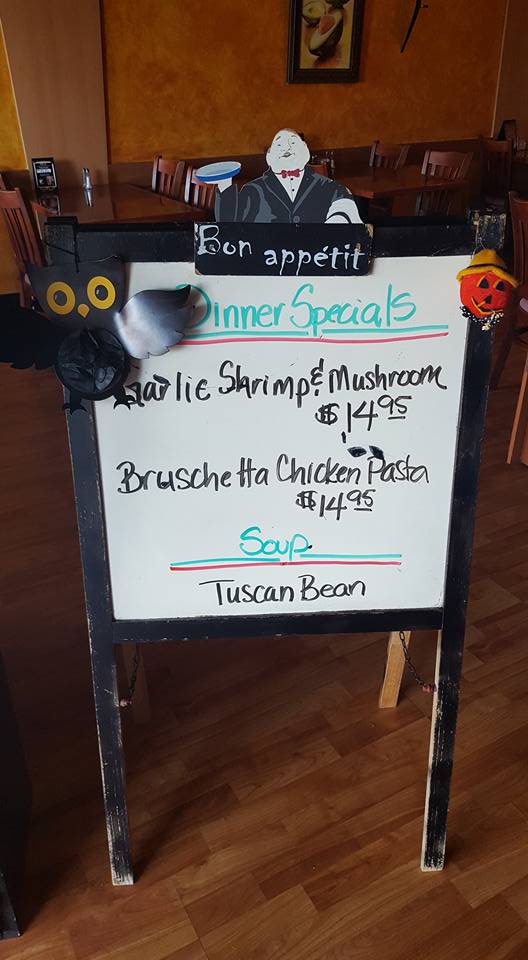 Bon appétit
Dinner Specials
Garlic Shrimp & Mushroom
$14.95
Bruschetta Chicken Pasta
$14.95
Soup
Tuscan Bean